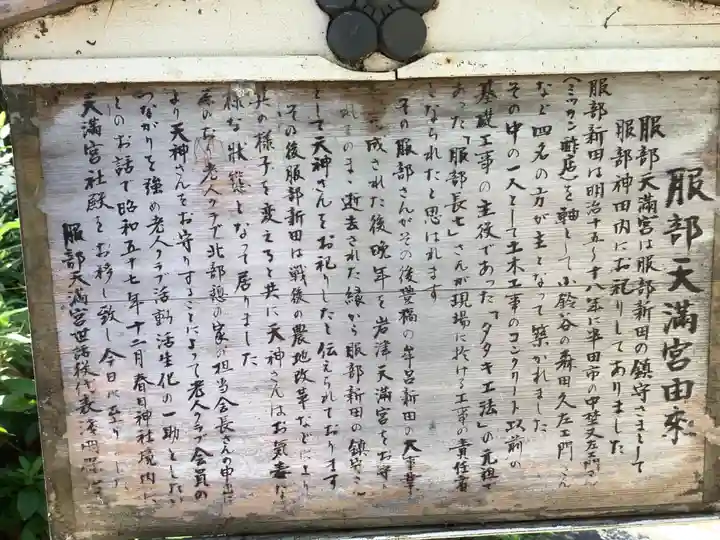 服部天満宮由来
服部天満宮は服部新田の鎮守さまとして
服部神田内にお祀りしてありました
服部新田は明治十五〜十八年に半田市の中埜又左エ門さん
(ミツカン酢店)を軸として小鈴谷の森田久左エ門さん
など四名の方が主となって築かれました
その中の一人として土木工事のコンクリート以前の
基礎工事の主役であった「タタキ工法」の元祖で
あった「服部長七」さんが現場に於ける工事の責任者
となられたと思はれます
その服部さんがその後豊橋の牟呂新田の大事業
成された後晩年を岩津天満宮をお守
れそのまゝ逝去された縁から服部新田の鎮守さ
として天神さんをお祀りしたと伝えられております
その後服部新田は戦後の農地改革などにより
其の様子を変えると共に天神さんはお気毒な
様な状態となって居りました
老人クラブ北部憩の家の担当会長さんの申
より天神さんをお守りすることによって老人クラブ会員の
つながりを強め老人クラブ活動活生化の一助としたい
とのお話で昭和五十七年十二月春日神社境内に
天満宮社殿をお移し致し今日に至りました
服部天満宮世話役代表